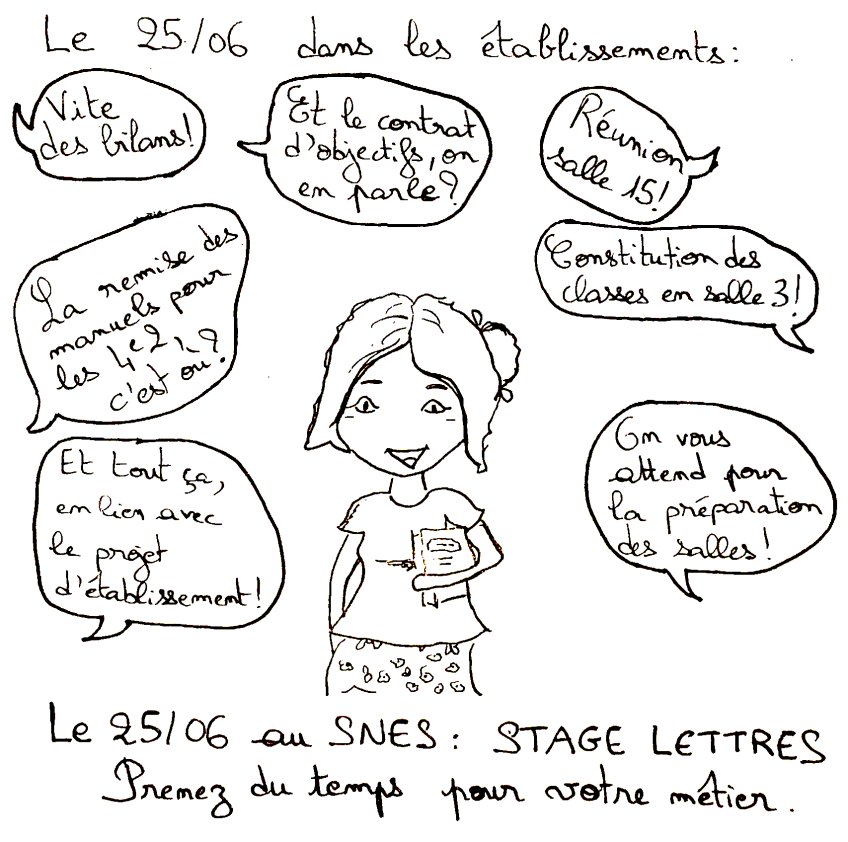 Le 25/06 dans les établissements :
Vite
des bilans !
Et le contrat
d'objectifs, on
en parle ?
Réunion
salle 15 !
La remise des
manuels pour
les 4e2, ?
c'est où ?
Constitution des
classes en salle 3 !
Et tout ça,
en lien avec
le projet
d'établissement !
On vous
attend pour
la préparation
des salles !
Le 25/06 au SNES : STAGE LETTRES
Prenez du temps pour votre métier.